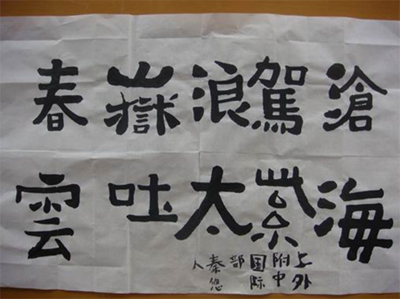 滄海
駕紫
浪太
嶽吐
春雲
上外
附中
国际
部
秦悠
人